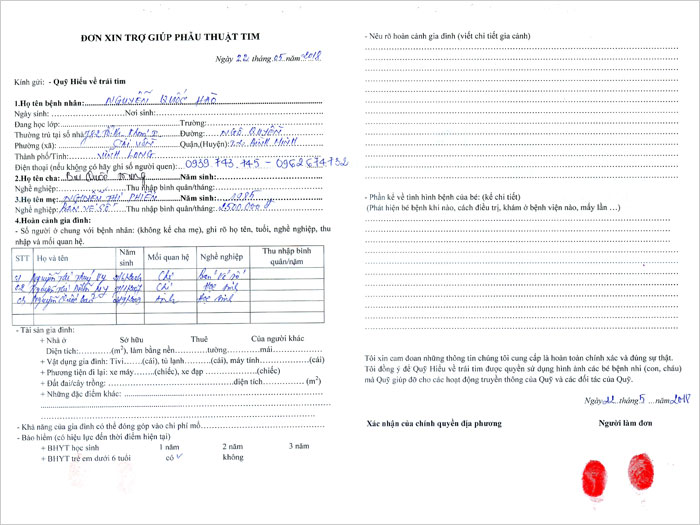 ĐƠN XIN TRỢ GIÚP PHẪU THUẬT TIM
Ngày 22 tháng 05 năm 2018
Kính gửi: - Quỹ Hiểu về trái tim
1.Họ tên bệnh nhân: NGUYỄN QUỐC HÀO
Ngày sinh: Nơi sinh:
Đang học lớp: Trường:
Thường trú tại số nhà Đường: NGÔ QUYỀN
Phường (xã): CÁI VỒN Quận,(Huyện): BÌNH MINH
Thành phố/Tỉnh: VĨNH LONG
Điện thoại (nếu không có hãy ghi số người quen): 0939 743.745 - 0962674732
2.Họ tên cha: Bùi Quốc Trung Năm sinh:
Nghề nghiệp: Thu nhập bình quân/tháng:
3.Họ tên mẹ: NGUYỄN THỊ PHIẾN Năm sinh: 1985
Nghề nghiệp: BÁN VÉ SỐ Thu nhập bình quân/tháng: 2500.000 đ
4.Hoàn cảnh gia đình:
- Số người ở chung với bệnh nhân: (không kể cha mẹ), ghi rõ họ tên, tuổi, nghề nghiệp, thu
nhập và mối quan hệ.
STT Họ và tên Năm sinh Mối quan hệ Nghề nghiệp Thu nhập bình quân/năm
01 Nguyễn Thị Vy Chị bán vé số
02 Nguyễn Thị My Chị Học sinh
03 Nguyễn Quốc Anh Học sinh
- Tài sản gia đình:
+ Nhà ở Sở hữu Thuê Của người khác
Diện tích: (m²), làm bằng nền tường mái
+ Vật dụng gia đình: Tivi (cái), tủ lạnh (cái), máy tính (cái)
+ Phương tiện đi lại: xe máy (chiếc), xe đạp (chiếc)
+ Đất đai/cây trồng: diện tích (m²)
+ Những đặc điểm khác:
- Khả năng của gia đình có thể đóng góp vào chi phí mổ
- Bảo hiểm (có hiệu lực đến thời điểm hiện tại)
+ BHYT học sinh 1 năm 2 năm 3 năm
+ BHYT trẻ em dưới 6 tuổi có ✓ không
- Nêu rõ hoàn cảnh gia đình (viết chi tiết gia cảnh)
- Phần kể về tình hình bệnh của bé: (kể chi tiết)
(Phát hiện bé bệnh khi nào, cách điều trị, khám ở bệnh viện nào, mấy lần …)
Tôi xin cam đoan những thông tin chúng tôi cung cấp là hoàn toàn chính xác và đúng sự thật.
Tôi đồng ý để Quỹ Hiểu về trái tim được quyền sử dụng hình ảnh các bé bệnh nhi (con, cháu)
mà Quỹ giúp đỡ cho các hoạt động truyền thông của Quỹ và các đối tác của Quỹ.
Ngày 22 tháng 5 năm 2018
Xác nhận của chính quyền địa phương Người làm đơn